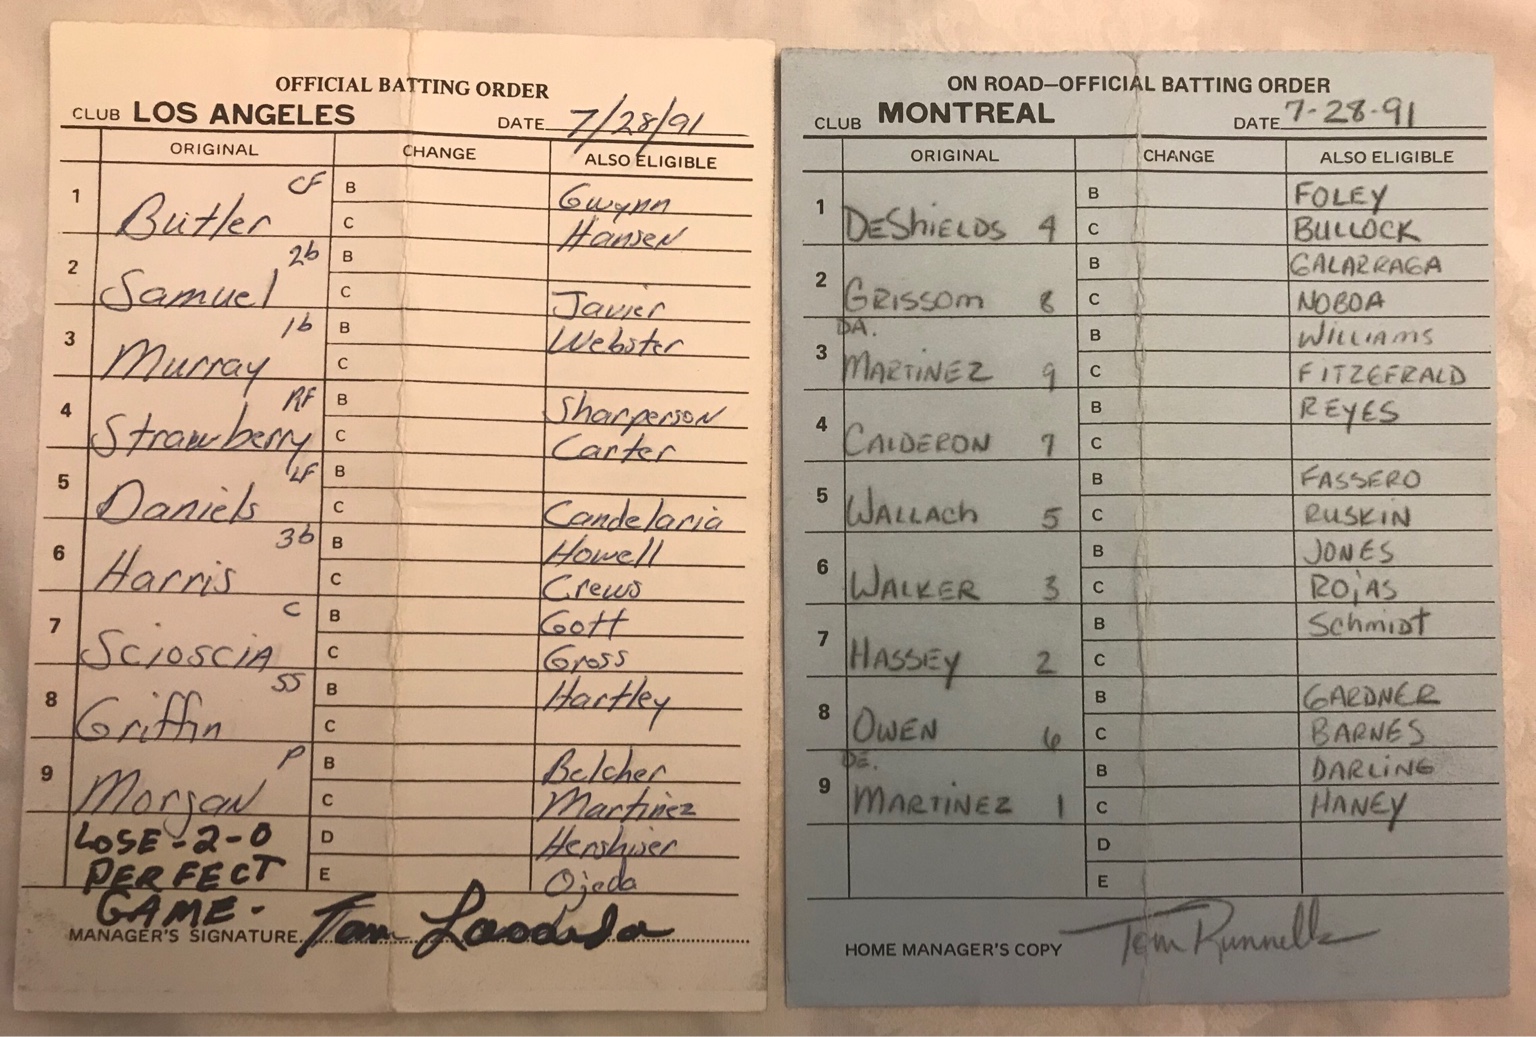 OFFICIAL BATTING ORDER
CLUB LOS ANGELES DATE 7/28/91
ORIGINAL CHANGE ALSO ELIGIBLE
1 Butler CF B Gwynn
C Hansen
2 Samuel 2b B
C Javier
3 Murray 1b B Webster
C
4 Strawberry RF B Sharperson
C Carter
5 Daniels LF B
C Candelaria
6 Harris 3b B Howell
C Crews
7 Scioscia C B Gott
C Gross
8 Griffin SS B Hartley
C
9 Morgan P B Belcher
C Martinez
LOSE-2-0 D Hershiser
PERFECT E Ojeda
GAME-
MANAGER'S SIGNATURE Tom Lasorda
ON ROAD—OFFICIAL BATTING ORDER
CLUB MONTREAL DATE 7-28-91
ORIGINAL CHANGE ALSO ELIGIBLE
1 DESHIELDS 4 B FOLEY
C BULLOCK
2 GRISSOM 8 B GALARRAGA
C NOBOA
3 DA. MARTINEZ 9 B WILLIAMS
C FITZGERALD
4 CALDERON 7 B REYES
C
5 WALLACH 5 B FASSERO
C RUSKIN
6 WALKER 3 B JONES
C ROJAS
7 HASSEY 2 B SCHMIDT
C
8 OWEN 6 B GARDNER
C BARNES
9 DE. MARTINEZ 1 B DARLING
C HANEY
D
E
HOME MANAGER'S COPY Tom Runnells